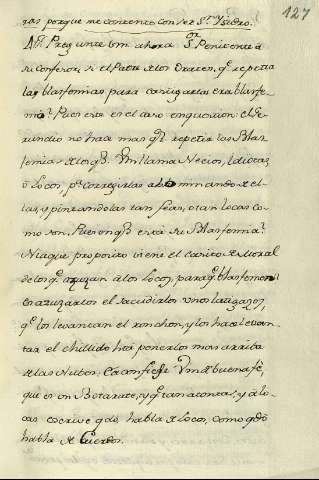 127
ras porque me contento con ser Sn Ysidro.
A Pregunte Vm ahora Sor Penitente a
su confesor, si el Padre de los Oraces, qe repetia
las blasfemias para castigarlas era blasfe-
mo? Pues este es el caso en question: el Ge-
rundio no hace mas qe repetir las Blas-
femias de los qe Vm llama Necios, Idiotas,
o Locos, pa corregirlas abominando de el-
las, y pintandolas tan feas, o tan locas co-
mo son. Pues en qe está su Blasfemia?
Ni a que proposito viene el casito de Moral
de los qe azuzan a los Locos, para qe blasfemen:
Es azuzarlos el sacudirlos unos latigazos,
qe los levantan el ronchon, y los hace levan-
tar el chillido hta ponerlos mas arriba
de las Nubes. Ea confiese Vm de buena fé,
que es un Botarate, y qe tan a tontas, y a lo-
cas escrive qdo habla de Locos, como qdo
habla de Cuerdos.